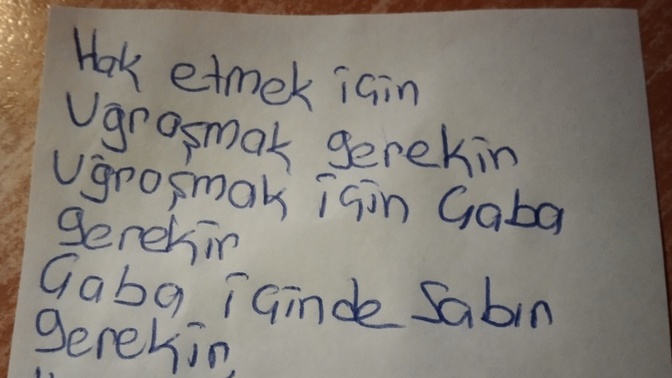 Hak etmek için
Uğraşmak gerekir
Uğraşmak için Çaba
gerekir
Çaba içinde Sabır
gerekir